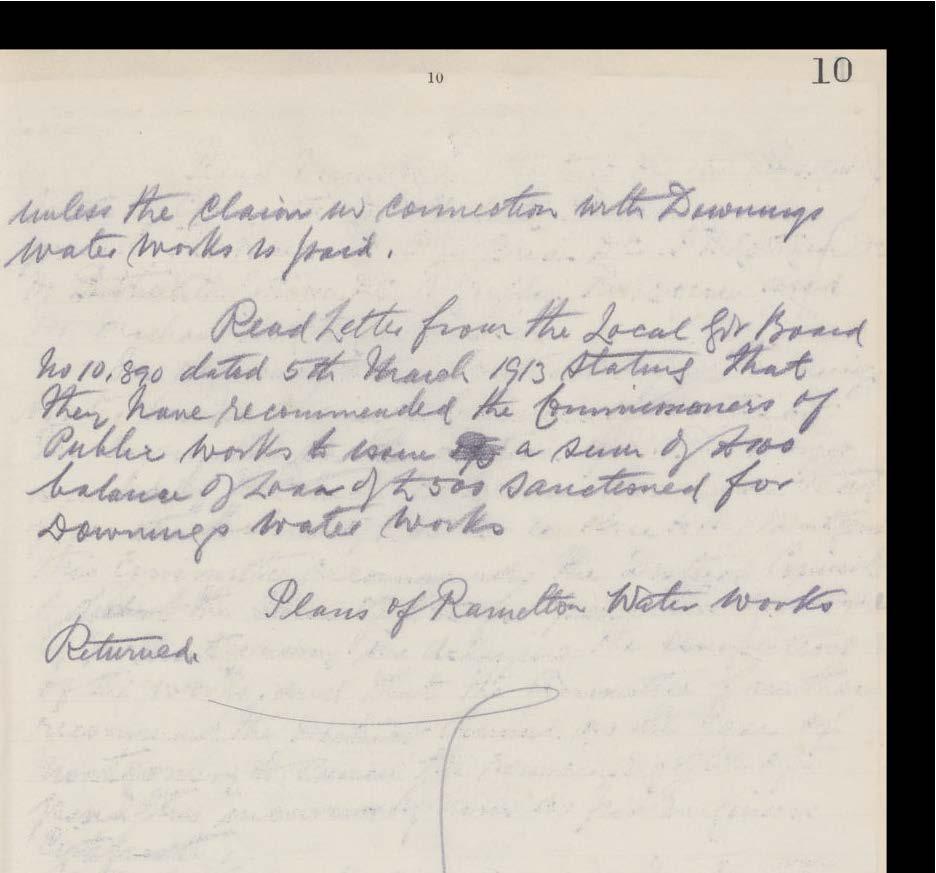 10
10
unless the claim in connection with Downings
water works is paid.
Read Letter from the Local Gov Board
No 10,890 dated 5th March 1913 stating that
they have recommended the Commissioners of
Public works to issue a sum of £100
balance of Loan of £500 sanctioned for
Downings Water Works
Plans of Ramelton Water Works
Returned.